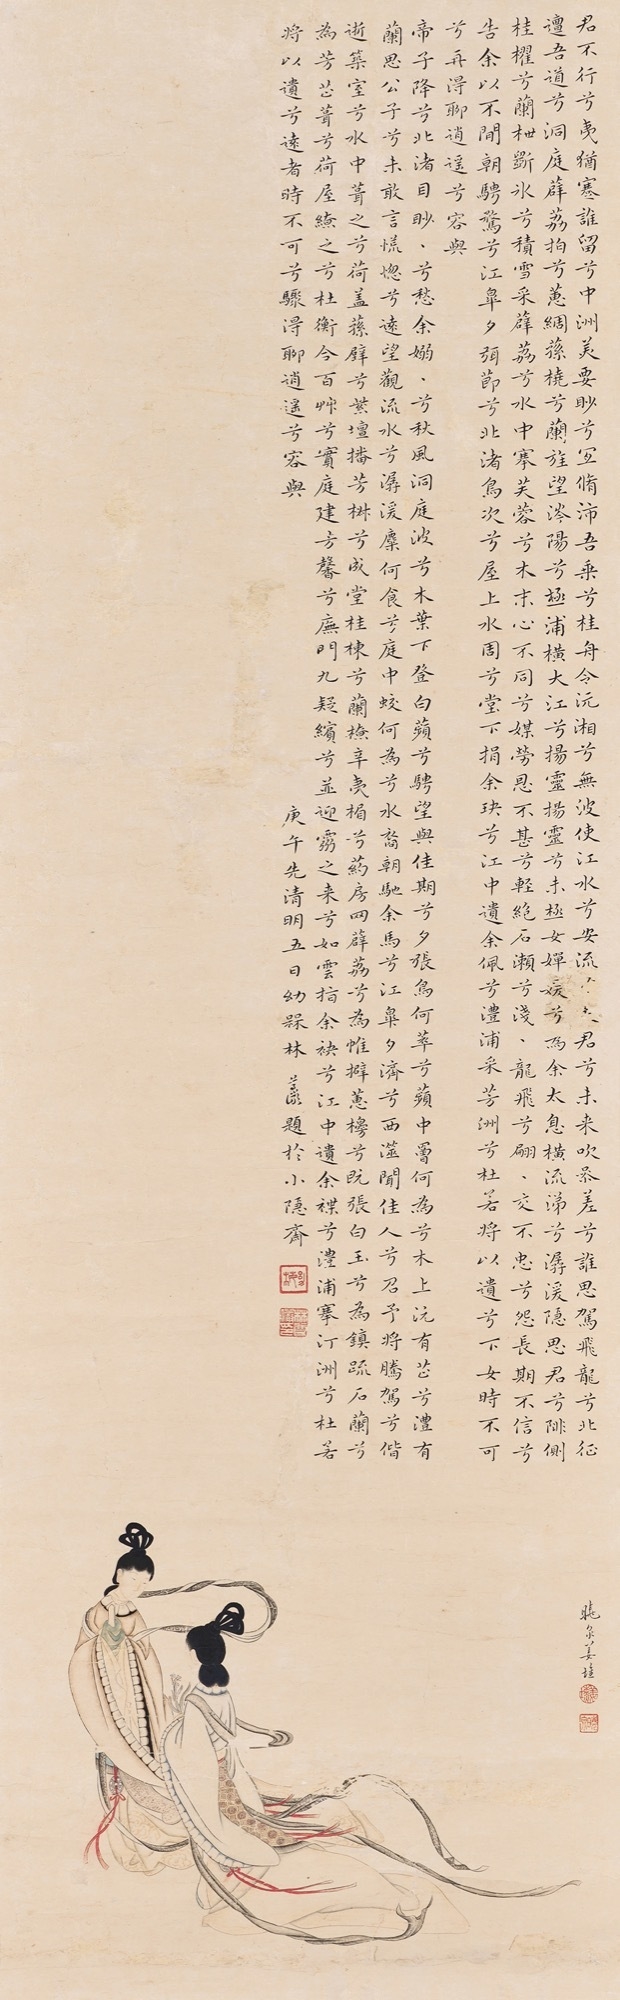 君不行兮夷猶蹇誰留兮中洲美要眇兮宜脩沛吾乘兮桂舟令沅湘兮無波使江水兮安流君兮未来吹參差兮誰思駕飛龍兮北征
邅吾道兮洞庭薜荔拍兮蕙綢蓀橈兮蘭旌望涔陽兮極浦橫大江兮揚靈揚靈兮未極女嬋媛兮為余太息橫流涕兮潺湲隱思君兮陫側
桂櫂兮蘭枻斲冰兮積雪采薜荔兮水中搴芙蓉兮木末心不同兮媒勞恩不甚兮輕絕石瀨兮淺、龍飛兮翩、交不忠兮怨長期不信兮
告余以不間朝騁騖兮江皋夕弭節兮北渚鳥次兮屋上水周兮堂下捐余玦兮江中遺余佩兮澧浦采芳洲兮杜若將以遺兮下女時不可
兮再得聊逍遥兮容與
帝子降兮北渚目眇、兮愁余嫋、兮秋風洞庭波兮木葉下登白蘋兮騁望與佳期兮夕張鳥何萃兮蘋中罾何為兮木上沅有芷兮澧有
蘭思公子兮未敢言慌惚兮遠望觀流水兮潺湲麋何食兮庭中蛟何為兮水裔朝馳余馬兮江皋夕濟兮西澨聞佳人兮召予將騰駕兮偕
逝築室兮水中葺之兮荷盖蓀壁兮紫壇播芳椒兮成堂桂棟兮蘭橑辛夷楣兮葯房罔薜荔兮為帷擗蕙櫋兮既張白玉兮為鎮疏石蘭兮
為芳芷葺兮荷屋繚之兮杜衡合百艸兮實庭建芳馨兮廡門九疑繽兮並迎靈之来兮如雲捐余袂兮江中遺余褋兮澧浦搴汀洲兮杜若
將以遺兮遠者時不可兮驟得聊逍遥兮容與
庚午先清明五日幼林題於小隱齋
曉泉姜壎